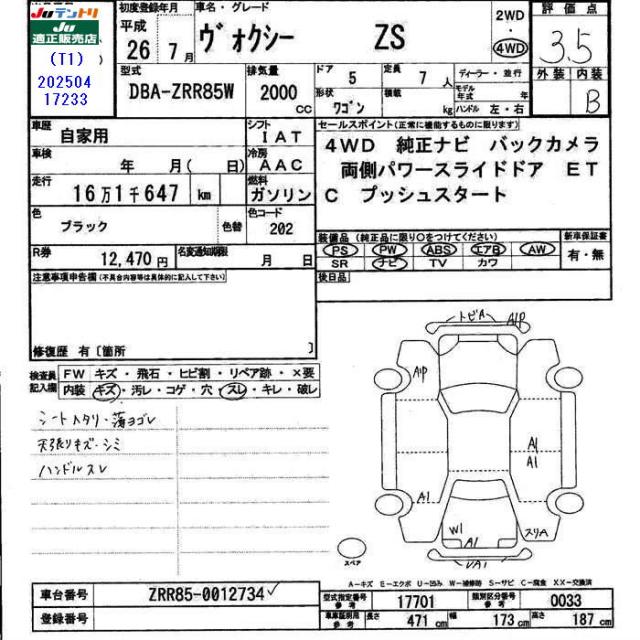 Juテントリ
Ju
適正販売店
(T1)
202504
17233
初度登録年月
平成
26年7月
車名・グレード
ヴォクシー ZS
2WD
・
4WD
評価点
3.5
外装 内装
B
型式
DBA-ZRR85W
排気量
2000
CC
ドア
5
定員
7人
形状
ワゴン
積載
kg
ディーラー・並行
モデル年式 年
ハンドル 左・右
車歴
自家用
シフト
IAT
車検
年 月( 日)
冷房
AAC
走行
16万1千647km
燃料
ガソリン
色
ブラック
色替
色コード
202
R券
12,470円
名変通知期限
月 日
セールスポイント(正常に機能するものに限ります)
4WD 純正ナビ バックカメラ
両側パワースライドドア ET
C プッシュスタート
装備品(純正品に限り〇をつけてください)
PS PW ABS エアB AW
SR ナビ TV カワ
新車保証書
有・無
後日品
注意事項申告欄(不具合内容等は具体的に記入して下さい)
修復歴 有〔箇所 〕
検査員
記入欄
FW キズ・飛石・ヒビ割・リペア跡・×要
内装 キズ・汚レ・コゲ・穴・スレ・キレ・破レ
シートヘタリ・薄ヨゴレ
天張リキズ・シミ
ハンドルスレ
トビA A1P
A1P
A1
A1
A1
W1
A1
スリA
スペア
A-キズ E-エクボ U-凹み W-補修跡 S-サビ C-腐食 XX-交換済
車台番号
ZRR85-0012734
登録番号
型式指定番号
参考
17701
類別区分番号
参考
0033
車車証明用
参考
長さ
471cm
幅
173cm
高さ
187cm